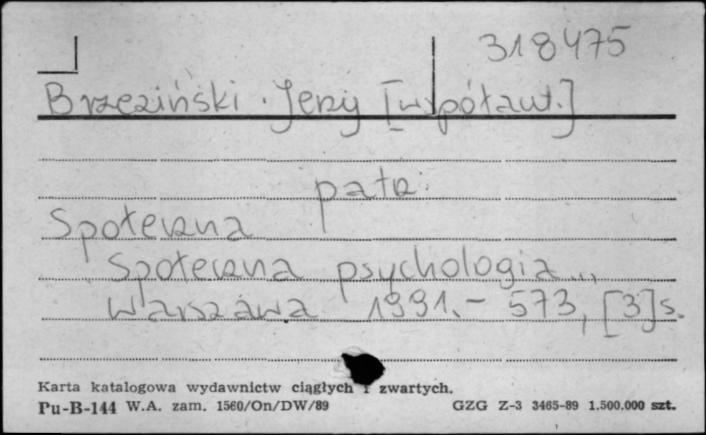 318475
Brzeziński Jerzy [współaut.]
patrz:
Społeczna
Społeczna psychologia...
Warszawa 1991.- 573, [3]s.
Karta katalogowa wydawnictw ciągłych i zwartych.
Pu-B-144 W.A. zam. 1560/On/DW/89 GZG Z-3 3465-89 1.500.000 szt.